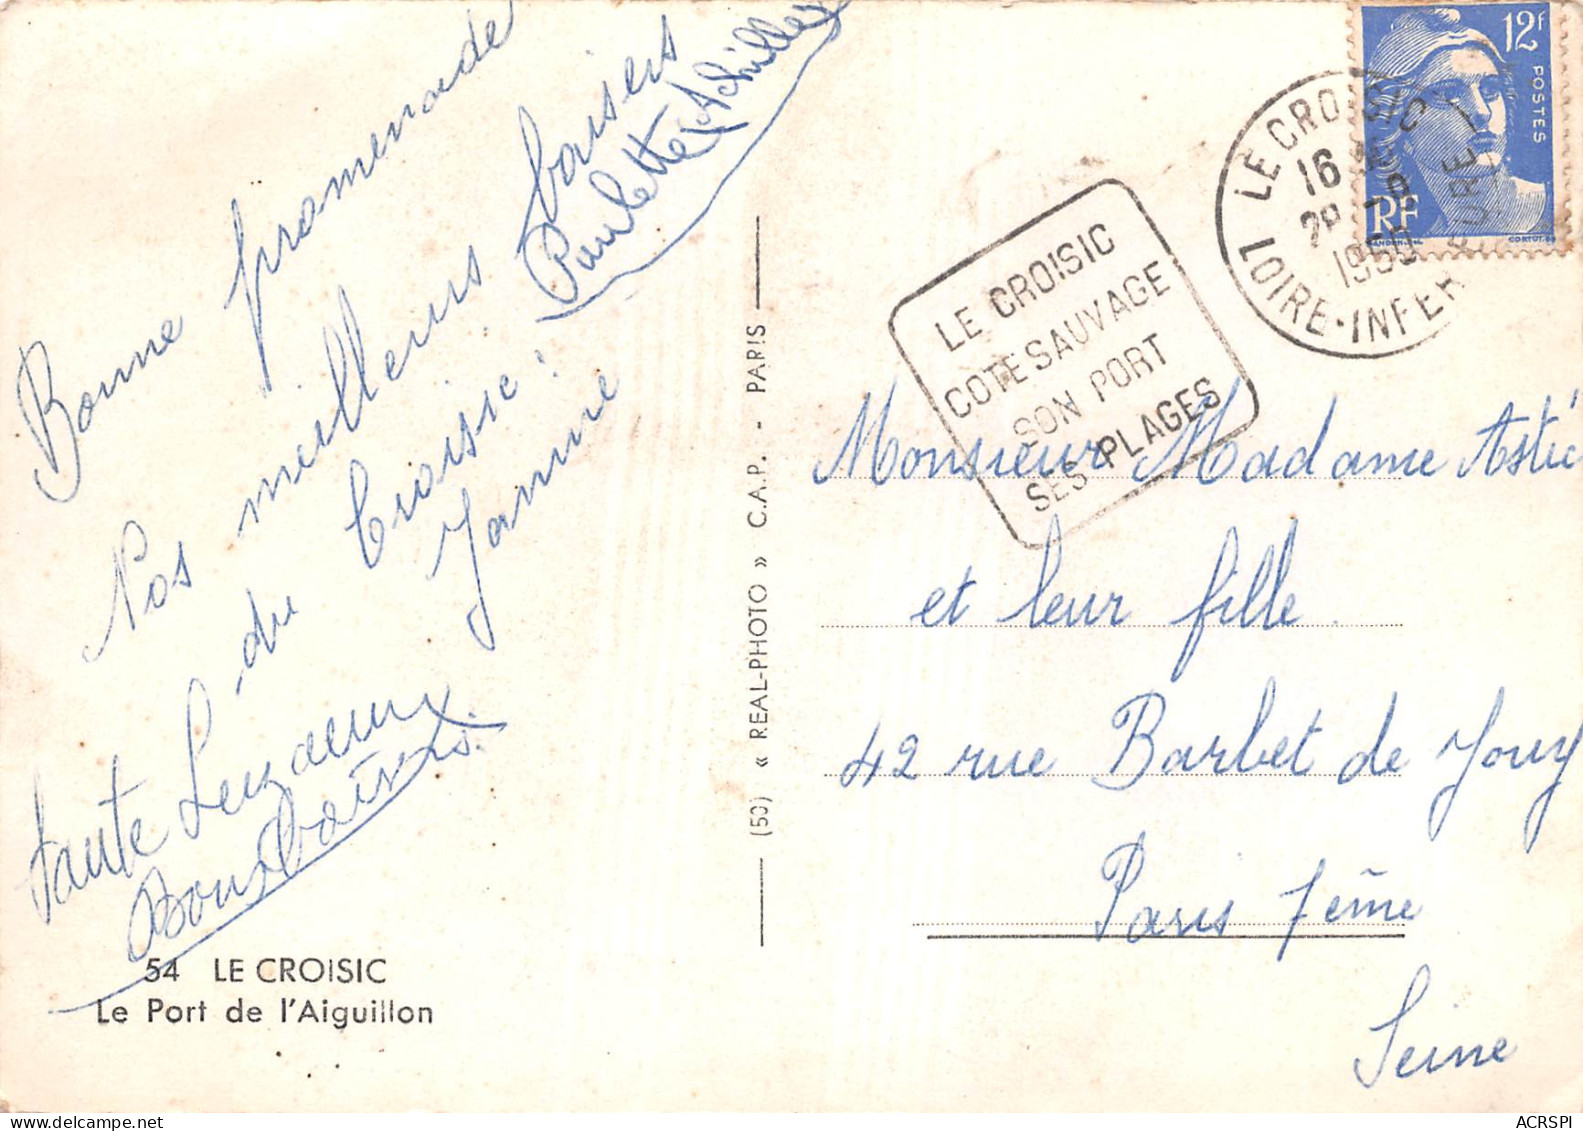 Bonne promenade
Nos meilleurs baisers
du Croisic!
Paulette Achille
Janine
tante
Bons baisers.
54 LE CROISIC
Le Port de l'Aiguillon
(50) « REAL-PHOTO » C.A.P. - PARIS
LE CROISIC
COTE SAUVAGE
SON PORT
SES PLAGES
LE CROISIC
16
28
LOIRE-INFERIEURE
12F
POSTES
RF
Monsieur Madame Astic
et leur fille.
42 rue Barbet de Jouy
Paris 7ème
Seine
ACRSPI